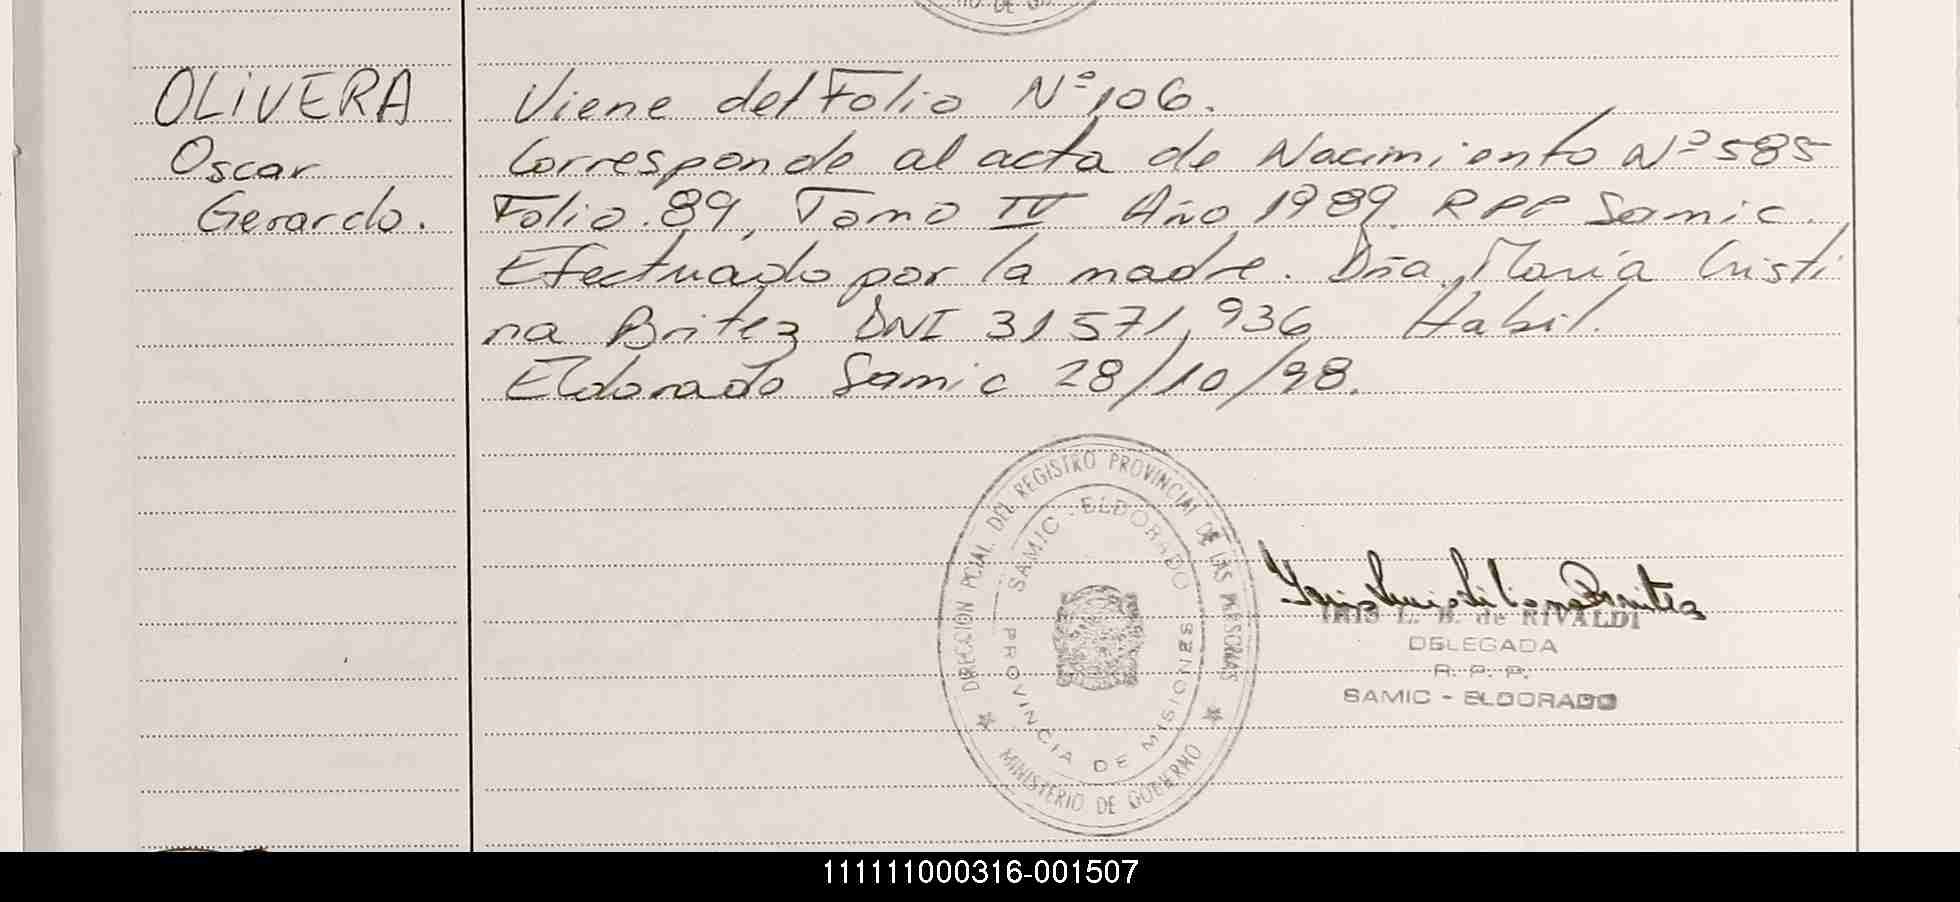 OLIVERA
Oscar
Gerardo.
Viene del Folio Nº 106.
Corresponde al acta de Nacimiento Nº 585
Folio 89, Tomo IV Año 1989. RPP Samic.
Efectuado por la madre. Dña. María Cristi
na Britez DNI 31.571.936 Habil.
Eldorado Samic 28/10/98.
DIRECCION PCIAL. DEL REGISTRO PROVINCIAL DE LAS PERSONAS
SAMIC - ELDORADO
PROVINCIA DE MISIONES
MINISTERIO DE GOBIERNO
IRIS L. B. de RIVALDI
DELEGADA
R. P. P.
SAMIC - ELDORADO
111111000316-001507